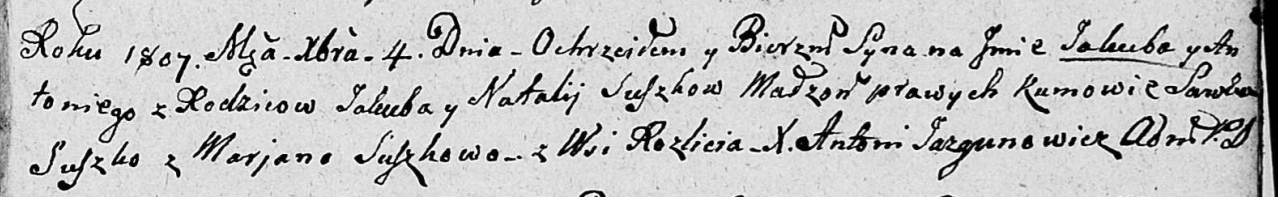 Roku 1807. Mca Xbra 4. Dnia Ochrzciłem y Bierzm Syna na Jmie Jakuba y An
toniego z Rodzicow Jakuba y Natalij Suszkow Madżon prawych Kumowie Sawka
Suszko z Marjano Suszkowo z Wsi Rozlicia X. Antoni Jazgunowicz Adm P.D